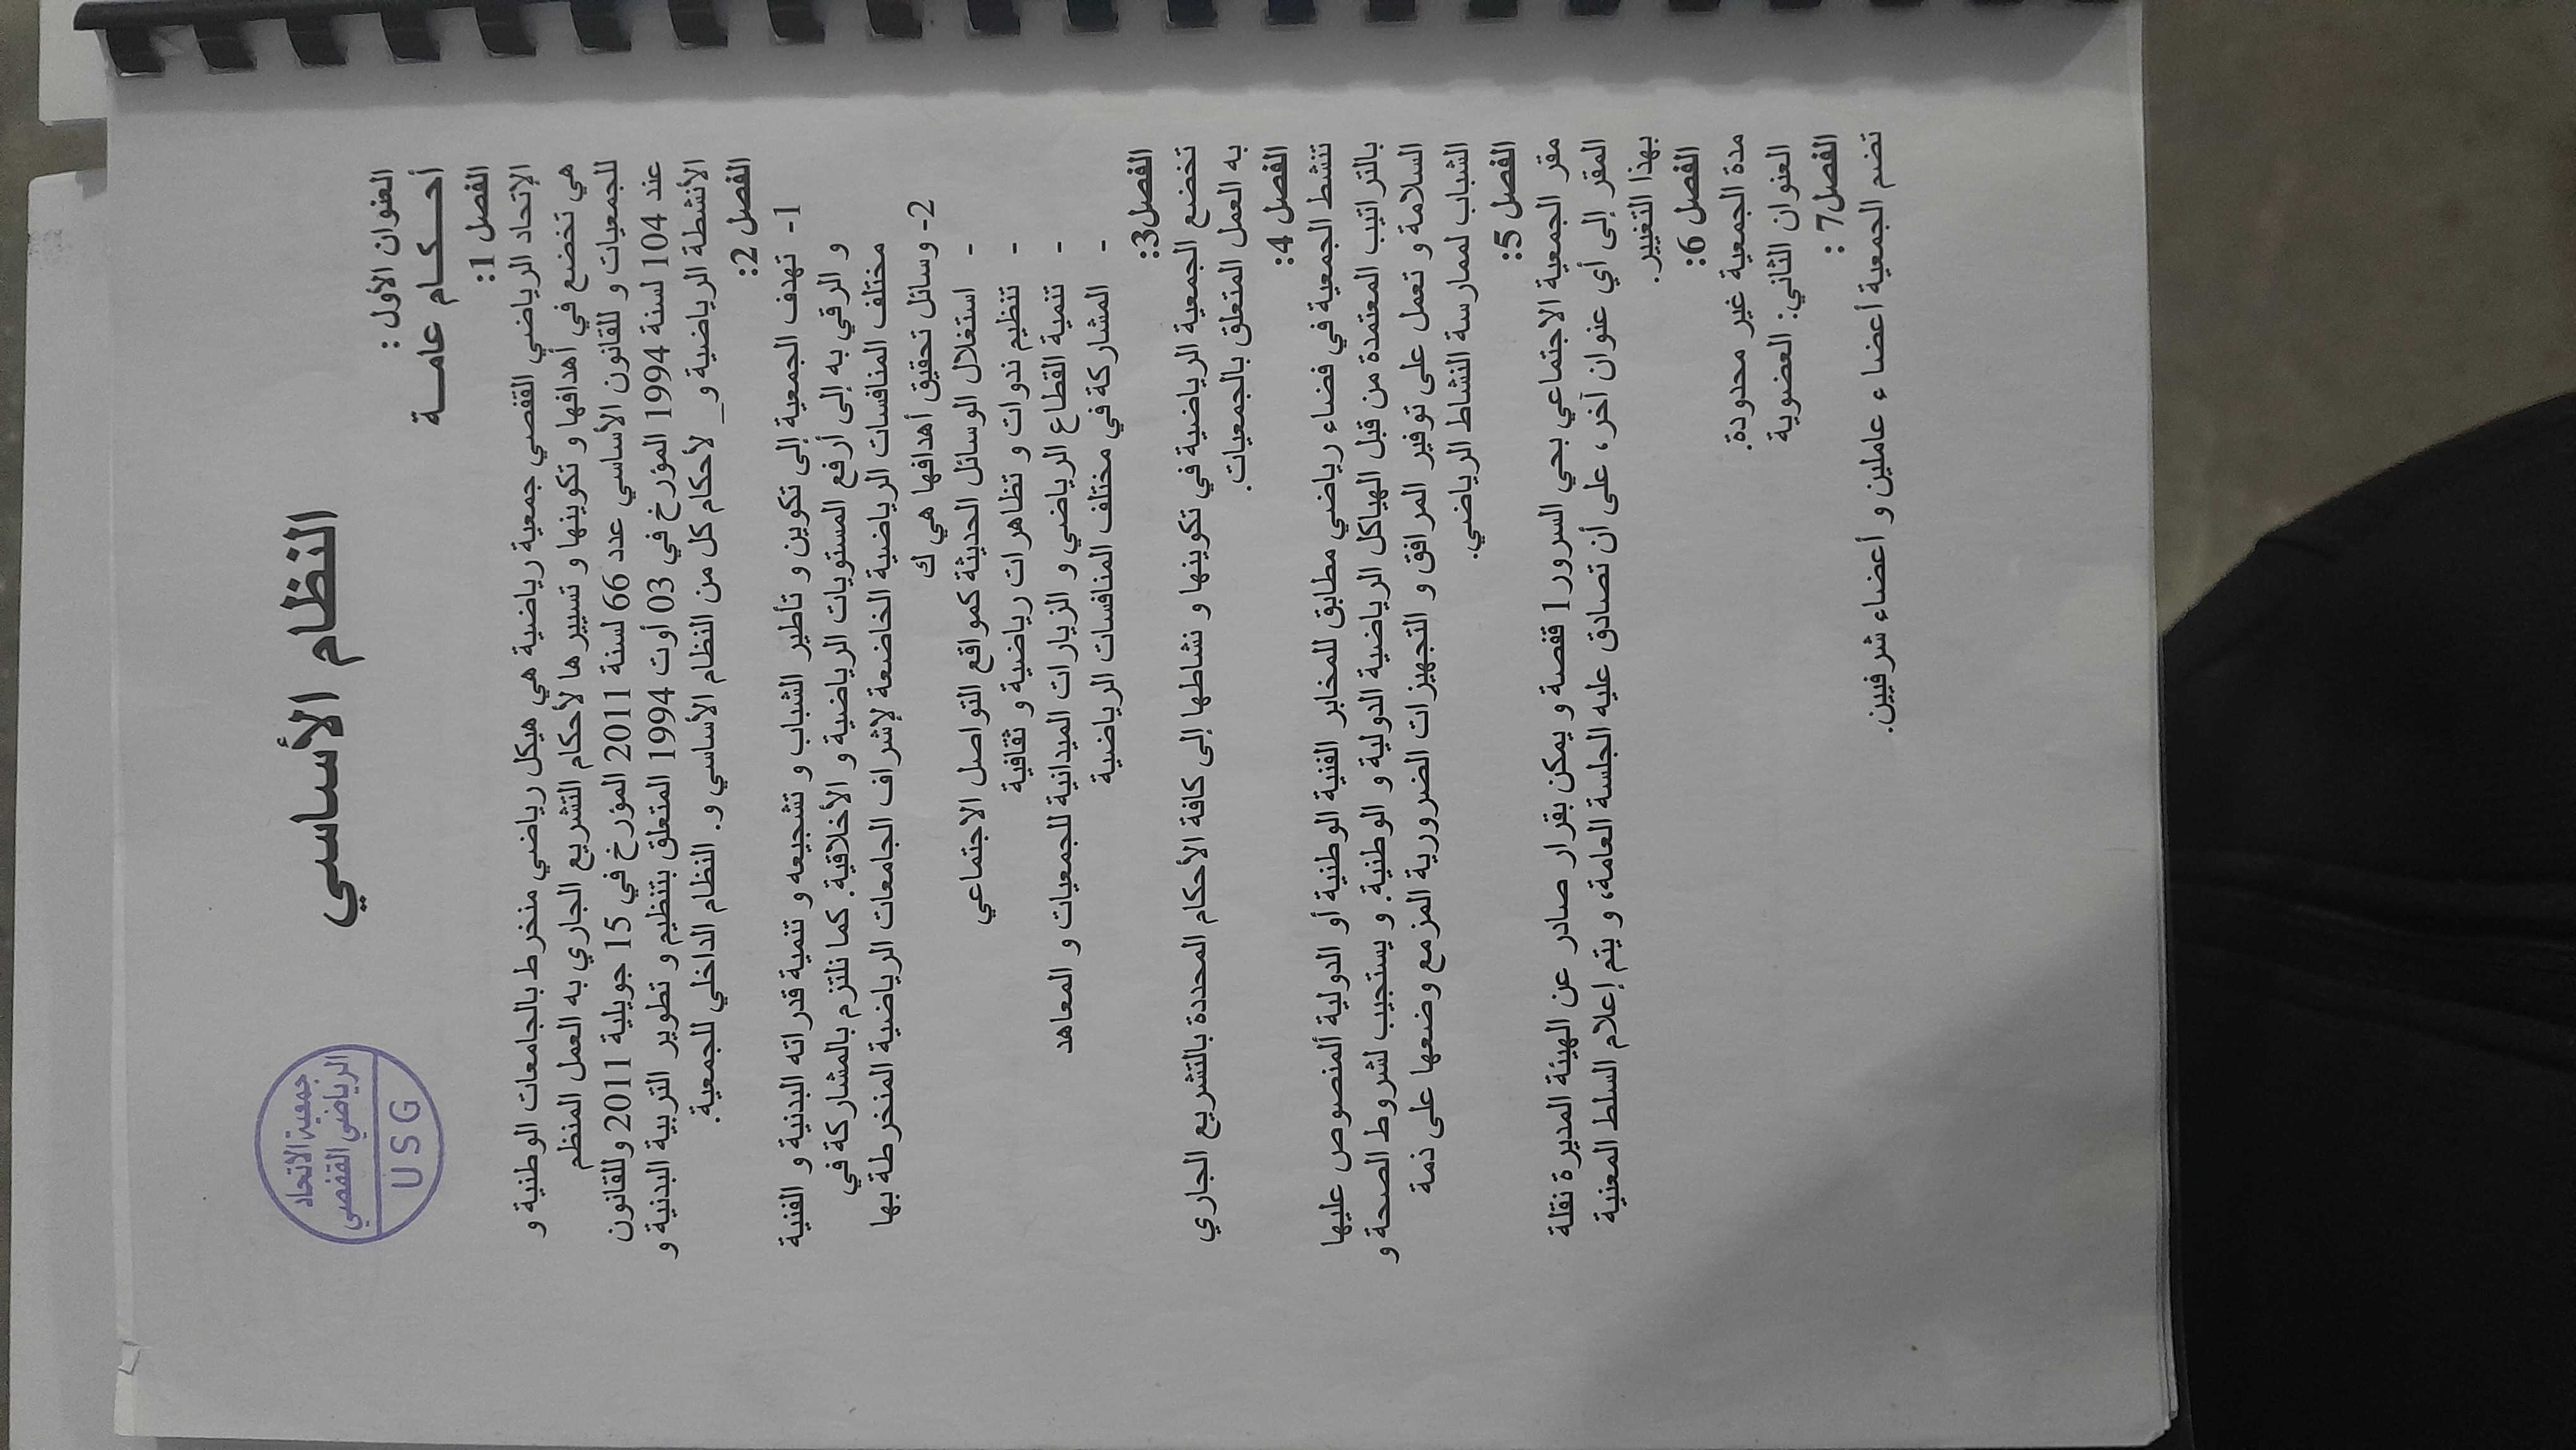 جمعية الاتحاد
الرياضي القفصي
U S G
النظام الأساسي
العنوان الأول :
أحـــكـــام عامـــة
الفصل 1:
الإتحاد الرياضي القفصي جمعية رياضية هي هيكل رياضي منخرط بالجامعات الوطنية و
هي تخضع في أهدافها و تكوينها و تسييرها لأحكام التشريع الجاري به العمل المنظم
للجمعيات و للقانون الأساسي عدد 66 لسنة 2011 المؤرخ في 15 جويلية 2011 وللقانون
عند 104 لسنة 1994 المؤرخ في 03 أوت 1994 المتعلق بتنظيم و تطوير التربية البدنية و
الأنشطة الرياضية و_ لأحكام كل من النظام الأساسي و. النظام الداخلي للجمعية.
الفصل 2:
1- تهدف الجمعية إلى تكوين و تأطير الشباب و تشجيعه و تنمية قدراته البدنية و الفنية
و الرقي به إلى أرفع المستويات الرياضية و الأخلاقية. كما نلتزم بالمشاركة في
مختلف المنافسات الرياضية الخاضعة لإشراف الجامعات الرياضية المنخرطة بها
2- وسائل تحقيق أهدافها هي ك
- استغلال الوسائل الحديثة كمواقع التواصل الاجتماعي
- تنظيم ندوات و تظاهرات رياضية و ثقافية
- تنمية القطاع الرياضي و الزيارات الميدانية للجمعيات و المعاهد
- المشاركة في مختلف المنافسات الرياضية
الفصل3:
تخضع الجمعية الرياضية في تكوينها و نشاطها إلى كافة الأحكام المحددة بالتشريع الجاري
به العمل المتعلق بالجمعيات.
الفصل 4:
تنشط الجمعية في فضاء رياضي مطابق للمخابر الفنية الوطنية أو الدولية ألمنصوص عليها
بالتراتيب المعتمدة من قبل الهياكل الرياضية الدولية و الوطنية. و يستجيب لشروط الصحة و
السلامة و تعمل على توفير المرافق و التجهيزات الضرورية المزمع وضعها على ذمة
الشباب لممارسة النشاط الرياضي.
الفصل 5:
مقر الجمعية الاجتماعي بحي السرور1 قفصة و يمكن بقرار صادر عن الهيئة المديرة نقلة
المقر إلى أي عنوان آخر، على أن تصادق عليه الجلسة العامة، و يتم إعلام السلط المعنية
بهذا التغيير.
الفصل 6:
مدة الجمعية غير محدودة.
العنوان الثاني: العضوية
الفصل7 :
تضم الجمعية أعضاء عاملين و أعضاء شرفيين.